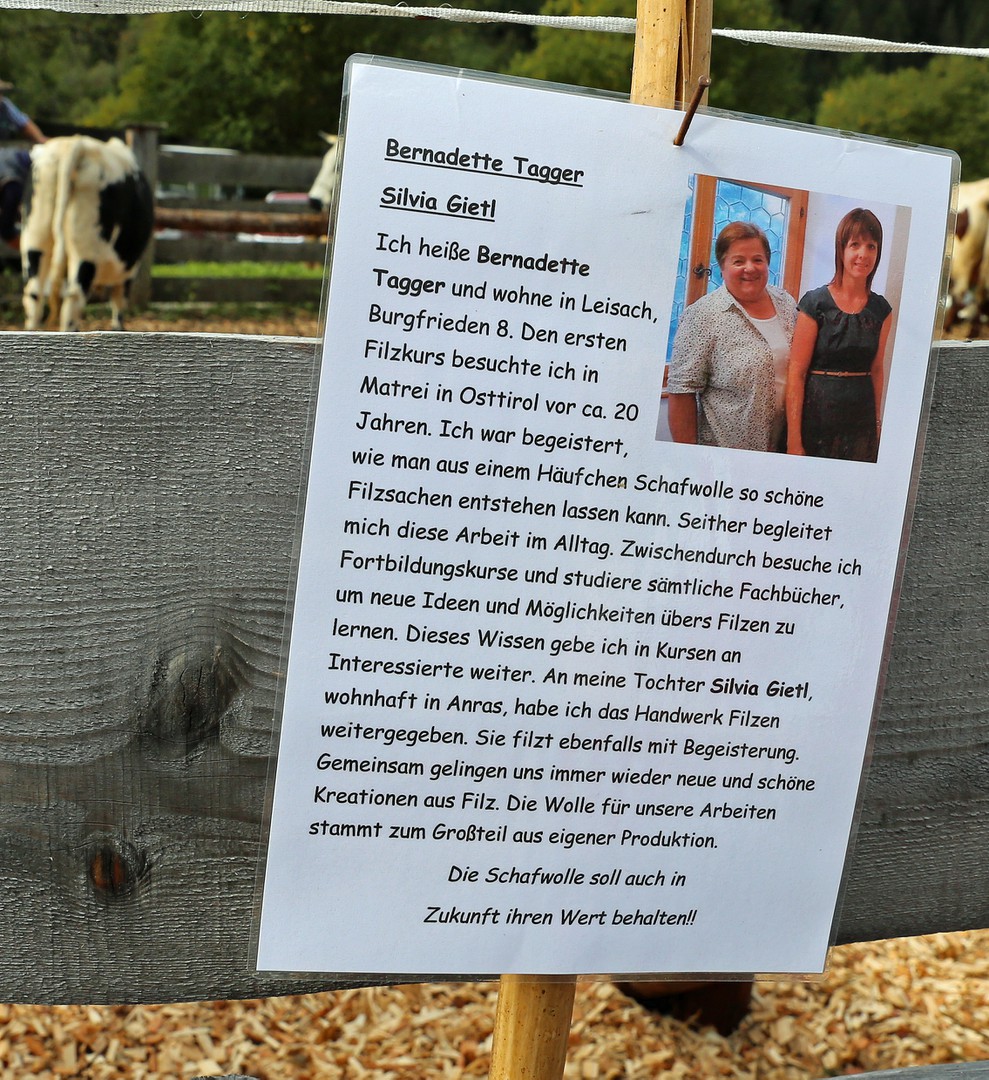 Bernadette Tagger
Silvia Gietl
Ich heiße Bernadette
Tagger und wohne in Leisach,
Burgfrieden 8. Den ersten
Filzkurs besuchte ich in
Matrei in Osttirol vor ca. 20
Jahren. Ich war begeistert,
wie man aus einem Häufchen Schafwolle so schöne
Filzsachen entstehen lassen kann. Seither begleitet
mich diese Arbeit im Alltag. Zwischendurch besuche ich
Fortbildungskurse und studiere sämtliche Fachbücher,
um neue Ideen und Möglichkeiten übers Filzen zu
lernen. Dieses Wissen gebe ich in Kursen an
Interessierte weiter. An meine Tochter Silvia Gietl,
wohnhaft in Anras, habe ich das Handwerk Filzen
weitergegeben. Sie filzt ebenfalls mit Begeisterung.
Gemeinsam gelingen uns immer wieder neue und schöne
Kreationen aus Filz. Die Wolle für unsere Arbeiten
stammt zum Großteil aus eigener Produktion.
Die Schafwolle soll auch in
Zukunft ihren Wert behalten!!